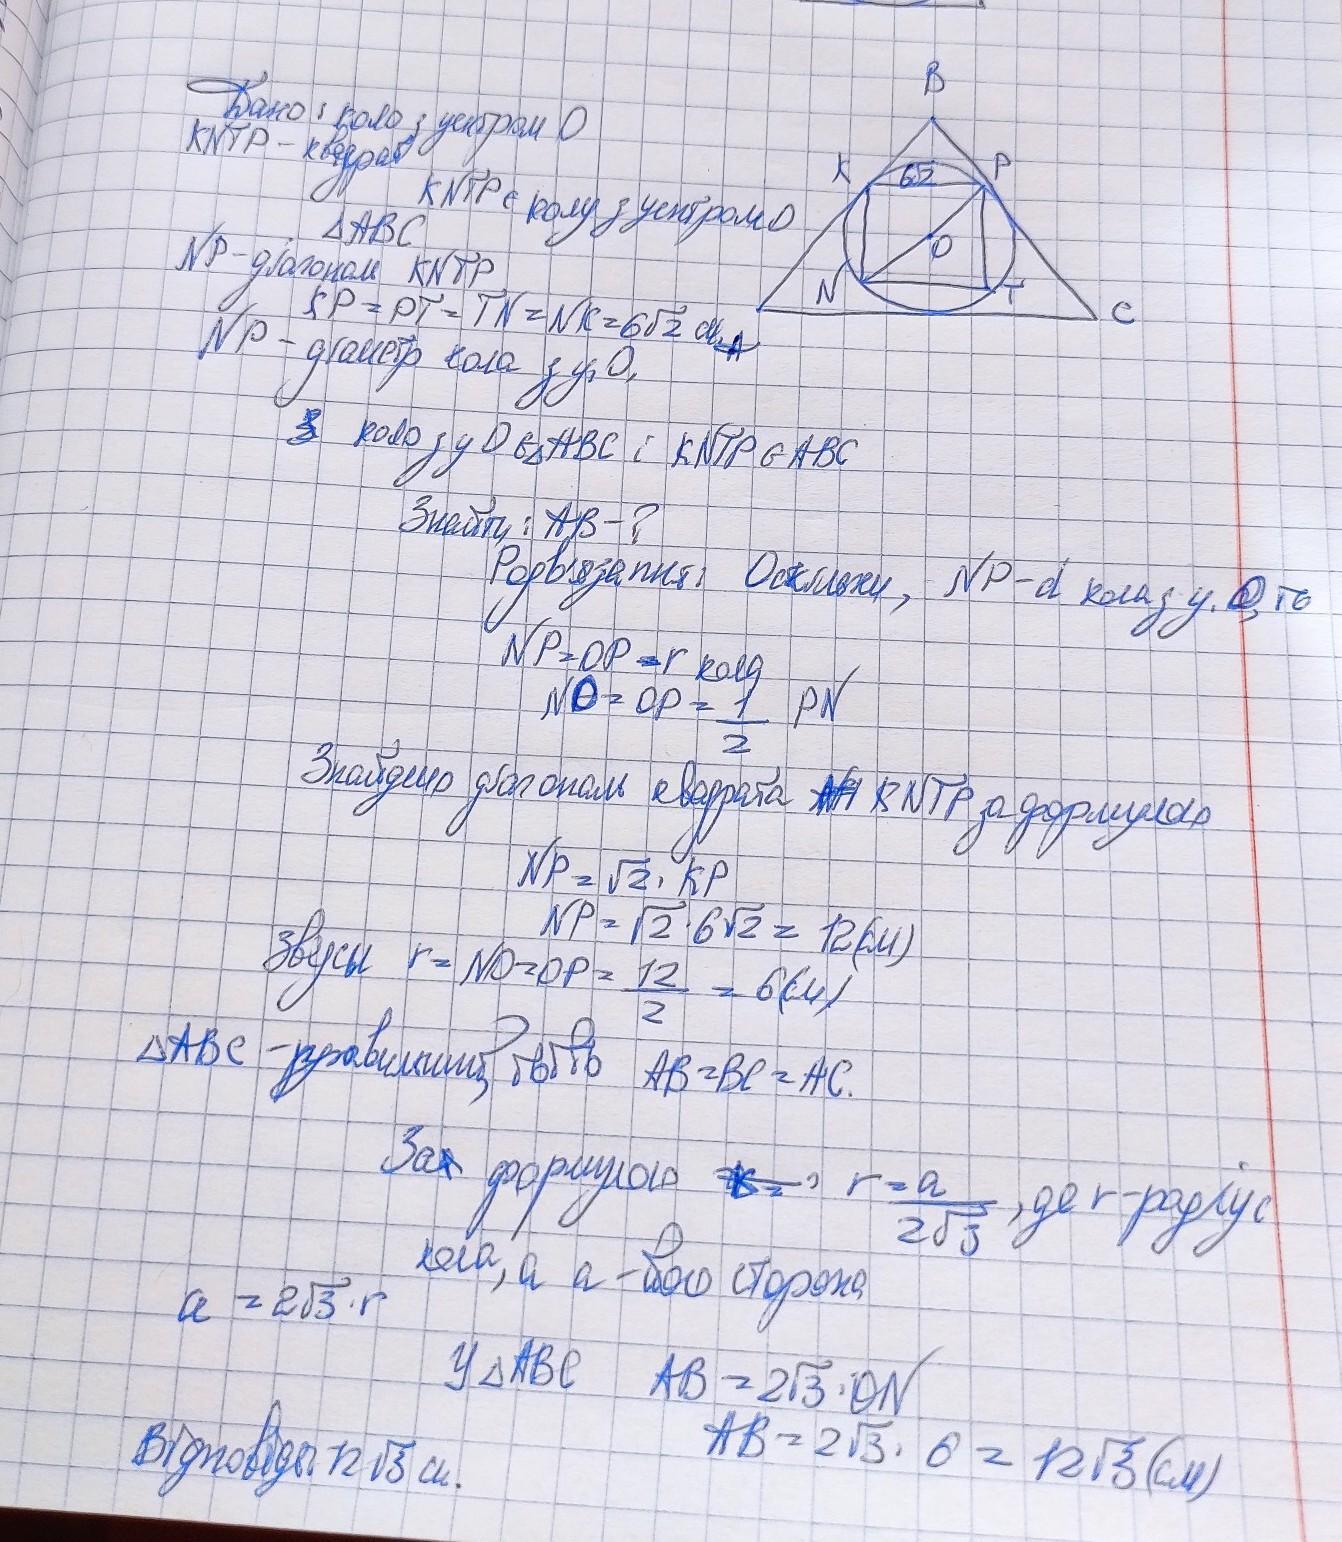 B
Дано: коло з центром O
KNTP - квадрат
K 6√2 P
KNTP є колу з центром O
△ABC
O
NP - діагональ KNTP
N T
KP = PT = TN = NK = 6√2 см
A C
NP - діаметр кола з ц. O.
коло з ц O є △ABC і KNTP є ABC
Знайти: AB - ?
Розв'язання: Оскільки, NP - d кола з ц. O, то
NP = OP = r кола
NO = OP = 1/2 PN
Знайдемо діагональ квадрата KNTP за формулою
NP = √2 · KP
NP = √2 · 6√2 = 12(см)
Звідси r = NO = OP = 12/2 = 6(см)
△ABC - правильний, тобто AB = BC = AC.
За формулою : r = a/2√3, де r - радіус
кола, а a - його сторона
a = 2√3 · r
У △ABC AB = 2√3 · ON
AB = 2√3 · 6 = 12√3 (см)
Відповідь: 12√3 см.